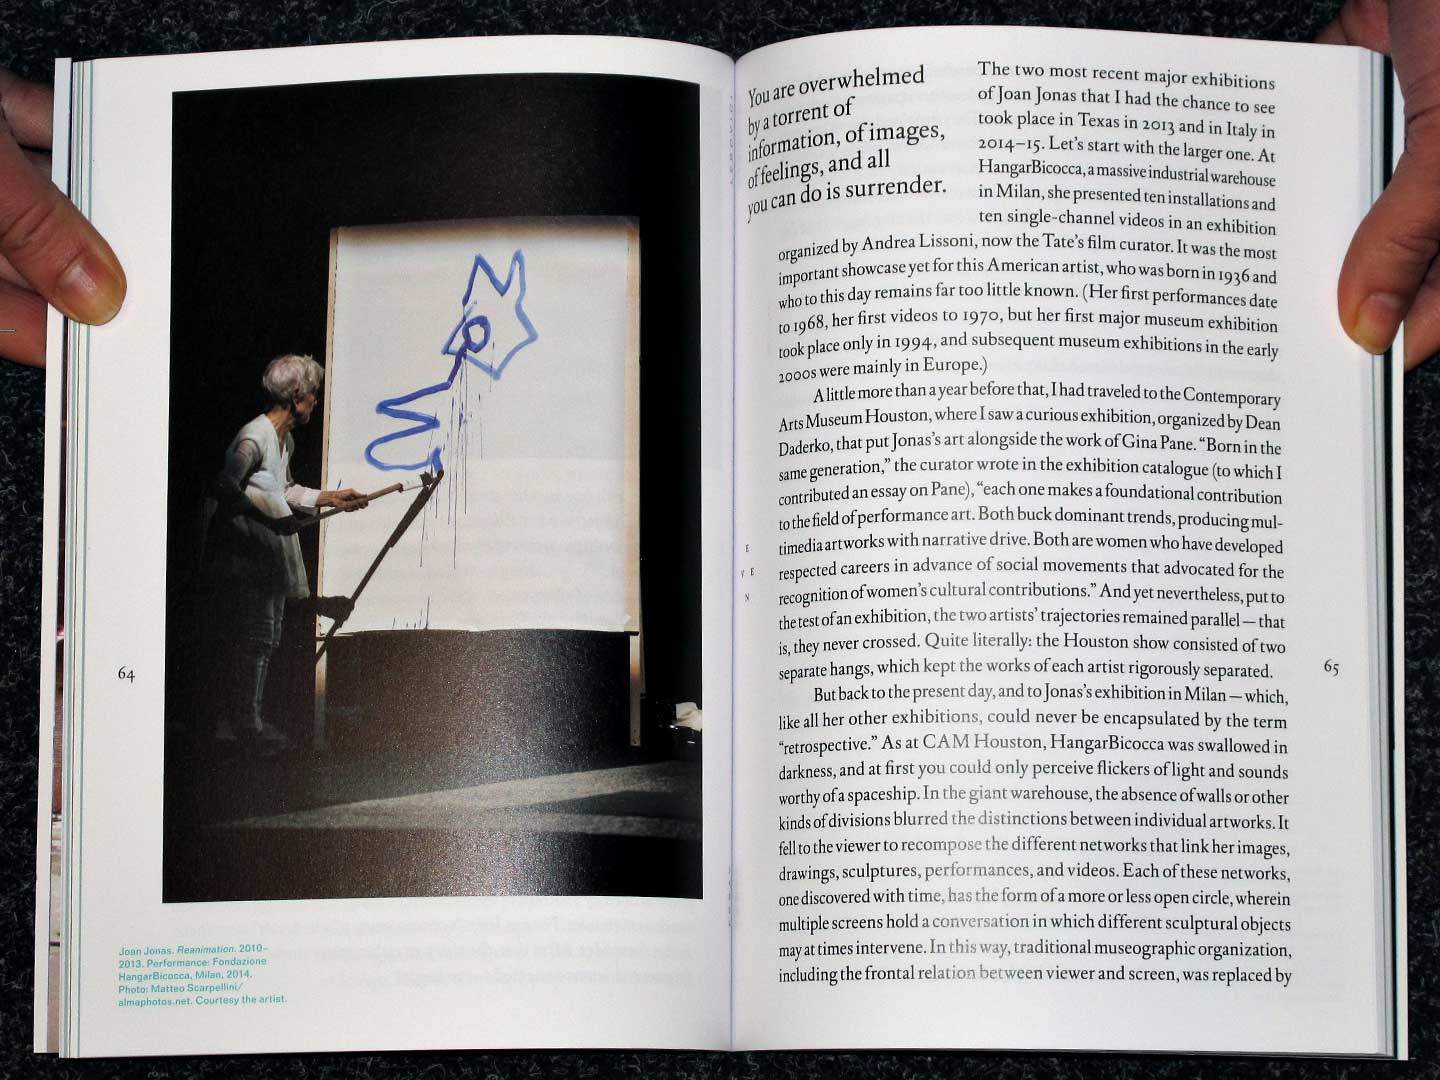 64
Joan Jonas. Reanimation. 2010–
2013. Performance: Fondazione
HangarBicocca, Milan, 2014.
Photo: Matteo Scarpellini/
almaphotos.net. Courtesy the artist.
You are overwhelmed
by a torrent of
information, of images,
of feelings, and all
you can do is surrender.
The two most recent major exhibitions
of Joan Jonas that I had the chance to see
took place in Texas in 2013 and in Italy in
2014–15. Let's start with the larger one. At
HangarBicocca, a massive industrial warehouse
in Milan, she presented ten installations and
ten single-channel videos in an exhibition
organized by Andrea Lissoni, now the Tate's film curator. It was the most
important showcase yet for this American artist, who was born in 1936 and
who to this day remains far too little known. (Her first performances date
to 1968, her first videos to 1970, but her first major museum exhibition
took place only in 1994, and subsequent museum exhibitions in the early
2000s were mainly in Europe.)
A little more than a year before that, I had traveled to the Contemporary
Arts Museum Houston, where I saw a curious exhibition, organized by Dean
Daderko, that put Jonas's art alongside the work of Gina Pane. “Born in the
same generation,” the curator wrote in the exhibition catalogue (to which I
contributed an essay on Pane), “each one makes a foundational contribution
to the field of performance art. Both buck dominant trends, producing mul-
timedia artworks with narrative drive. Both are women who have developed
respected careers in advance of social movements that advocated for the
recognition of women's cultural contributions.” And yet nevertheless, put to
the test of an exhibition, the two artists' trajectories remained parallel — that
is, they never crossed. Quite literally: the Houston show consisted of two
separate hangs, which kept the works of each artist rigorously separated.
But back to the present day, and to Jonas's exhibition in Milan — which,
like all her other exhibitions, could never be encapsulated by the term
“retrospective.” As at CAM Houston, HangarBicocca was swallowed in
darkness, and at first you could only perceive flickers of light and sounds
worthy of a spaceship. In the giant warehouse, the absence of walls or other
kinds of divisions blurred the distinctions between individual artworks. It
fell to the viewer to recompose the different networks that link her images,
drawings, sculptures, performances, and videos. Each of these networks,
one discovered with time, has the form of a more or less open circle, wherein
multiple screens hold a conversation in which different sculptural objects
may at times intervene. In this way, traditional museographic organization,
including the frontal relation between viewer and screen, was replaced by
E
V E
N
65